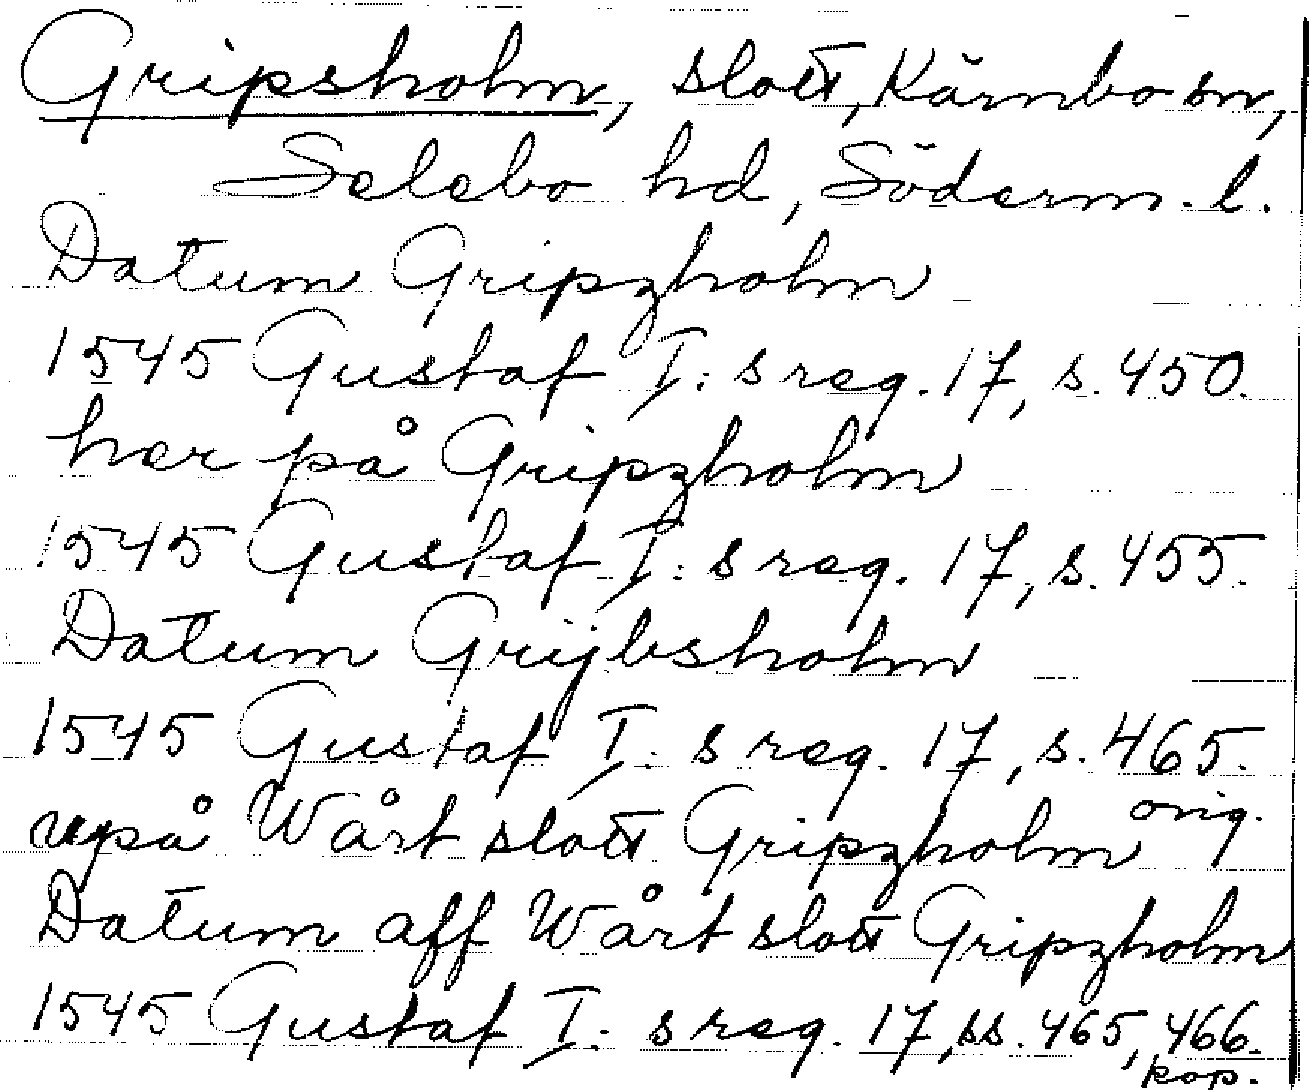 Gripsholm, slott, Kärnbo sn,
Selebo hd, Söderm. l.
Datum Gripzholm
1545 Gustaf I: s reg. 17, s. 450.
her på Gripzholm
1545 Gustaf I: s reg. 17, s. 455.
Datum Grijbsholm
1545 Gustaf I: s reg. 17, s. 465.
orig.
upå Wårt slott Gripzholm
Datum aff Wårt slott Gripzholm
1545 Gustaf I: s reg. 17, ss. 465, 466.
kop.